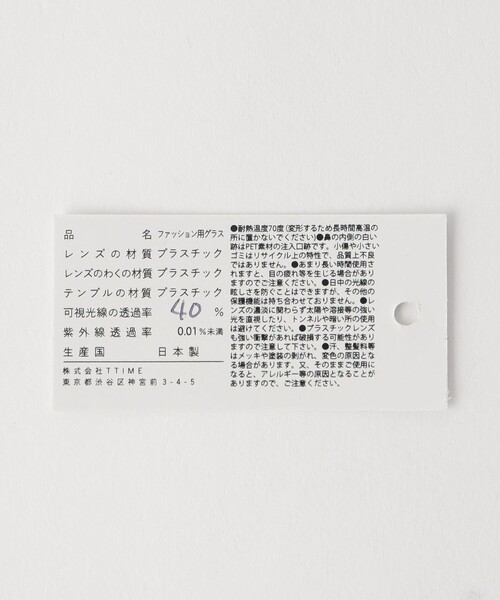 品名 ファッション用グラス
レンズの材質 プラスチック
レンズのわくの材質 プラスチック
テンプルの材質 プラスチック
可視光線の透過率 40 %
紫外線透過率 0.01%未満
生産国 日本製
株式会社TTIME
東京都渋谷区神宮前3-4-5
●耐熱温度70度(変形するため長時間高温の
所に置かないでください)●鼻の内側の白い
跡はPET素材の注入口跡です。小傷や小さい
ゴミはリサイクル上の特性で、品質上不良
ではありません。●あまり長い時間使用さ
れますと、目の疲れ等を生じる場合があり
ますのでご注意ください。●日中の光線の
眩しさを防ぐことはできますが、その他の
保護機能は持ち合わせておりません。●レ
ンズの濃淡に関わらず太陽や溶接等の強い
光を直視したり、トンネルや暗い所の使用
は避けてください。●プラスチックレンズ
も強い衝撃があれば破損する可能性があり
ますので注意して下さい。●汗、整髪料等
はメッキや塗装の剥がれ、変色の原因とな
る場合があります。又、そのままご使用に
なると、アレルギー等の原因となることが
ありますので、ご注意ください。